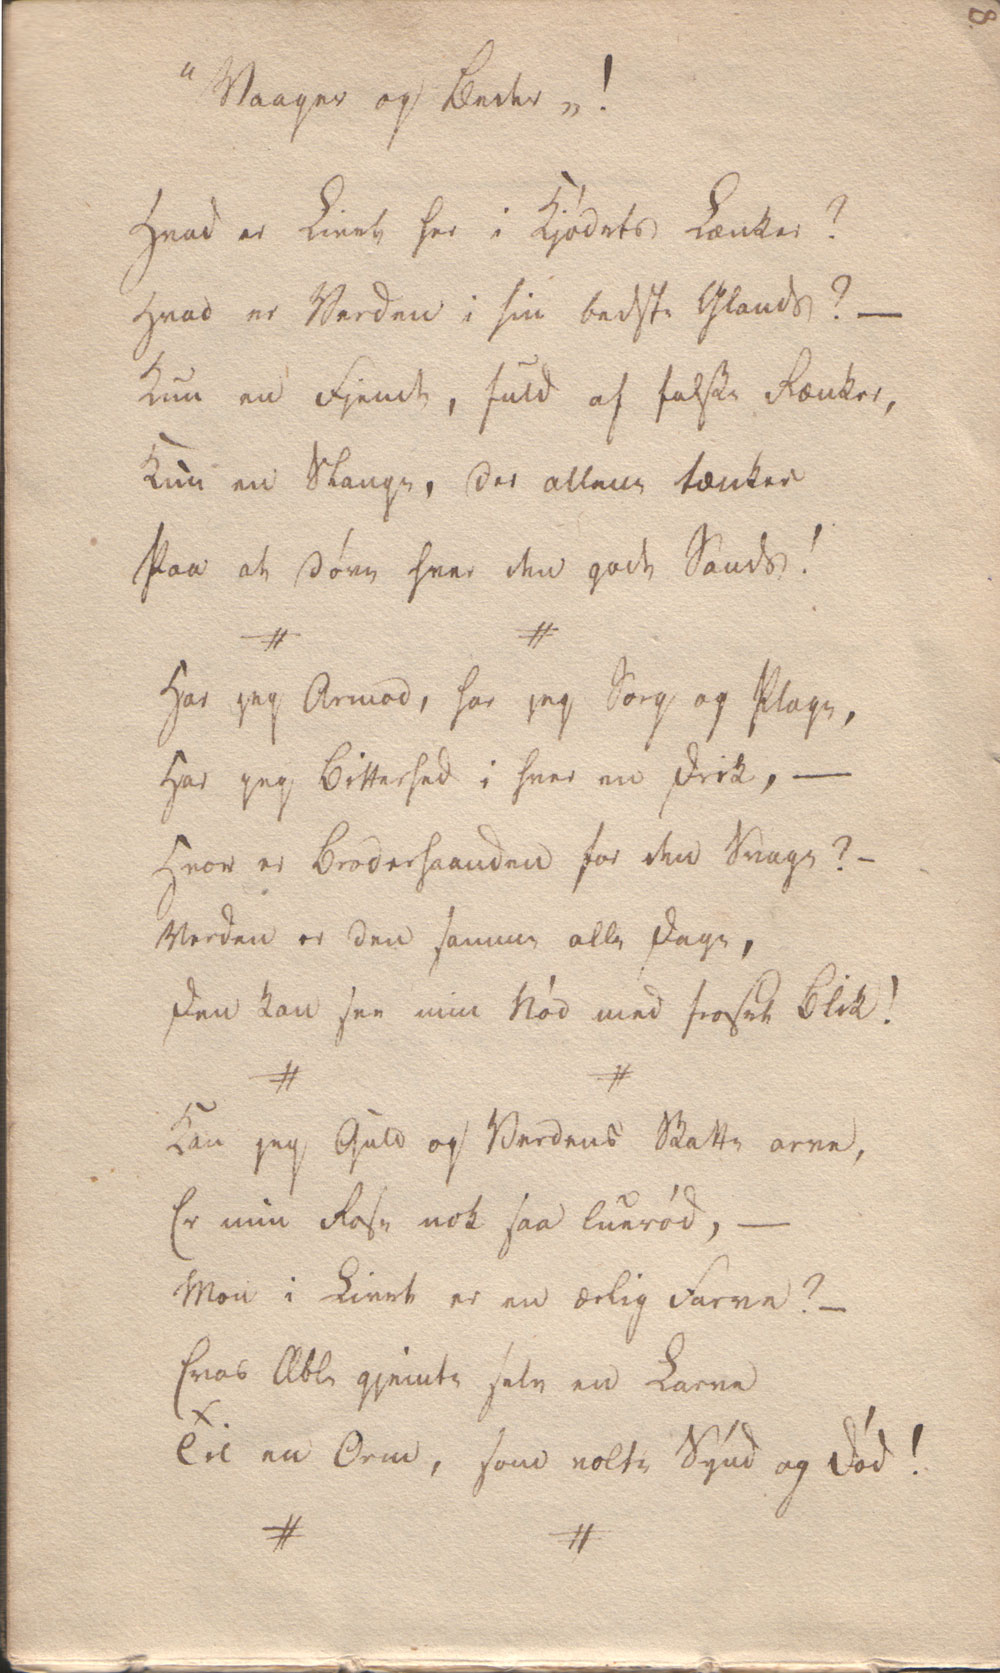 8.
"Vaager og Beder"!
Hvad er Livet her i Kjødets Lænker?
Hvad er Verden i sin bedste Glands? —
Kun en Fjende, fuld af falske Rænker,
Kun en Slange, der allene tænker
Paa at døve hver den gode Sands!
Har jeg Armod, har jeg Sorg og Plage,
Har jeg Bitterhed i hver en Drik, —
Hvor er Broderhaanden for den Svage? –
Verden er den samme alle Dage,
Den kan see min Nød med frosset Blik!
Kan jeg Guld og Verdens Skatte arve,
Er min Rose nok saa luerød, —
Mon i Livet er en ærlig Farve? –
Evas Æble gjemte selv en Larve
Til en Orm, som voldte Synd og Død!